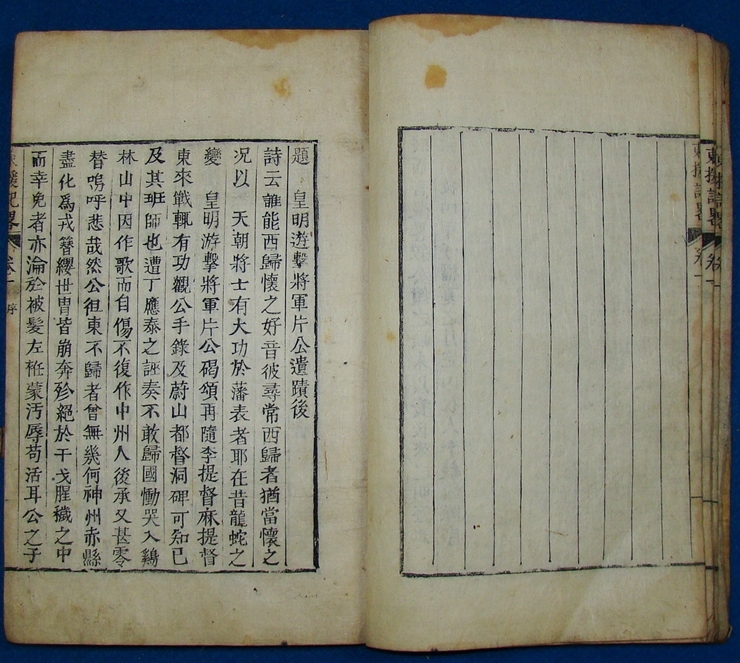 東援記畧
卷一
題 皇明遊擊將軍片公遺蹟後
詩云誰能西歸懷之好音彼尋常西歸者猶當懷之
況以 天朝將士有大功於藩表者耶在昔龍蛇之
變 皇明游擊將軍片公碣頌再隨李提督麻提督
東來戰輒有功觀公手錄及蔚山都督洞碑可知已
及其班師也遭丁應泰之誣奏不敢歸國慟哭入鷄
林山中因作歌而自傷不復作中州人後承又甚零
替嗚呼悲哉然公徂東不歸者曾無幾何神州赤縣
盡化爲戎簪纓世胄皆崩奔殄絕於干戈腥穢之中
而幸免者亦淪於被髮左袵蒙汚辱苟活耳公之子
東援記畧
卷一
序